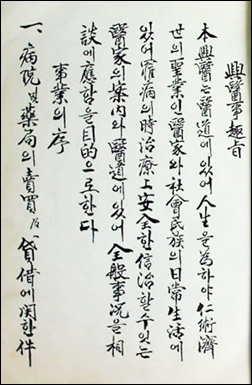 興醫事趣旨
本興醫는醫道에있어人生을為하야仁術濟
世의聖業인醫家와社會民族의日常生活에
있어罹病의時治療上安全한信治할수잇는
醫家의案內와醫道에있어全般事況을相
談에應함을目的으로한다
事業의序
一、病院및藥局의賣買及貸借에関한件